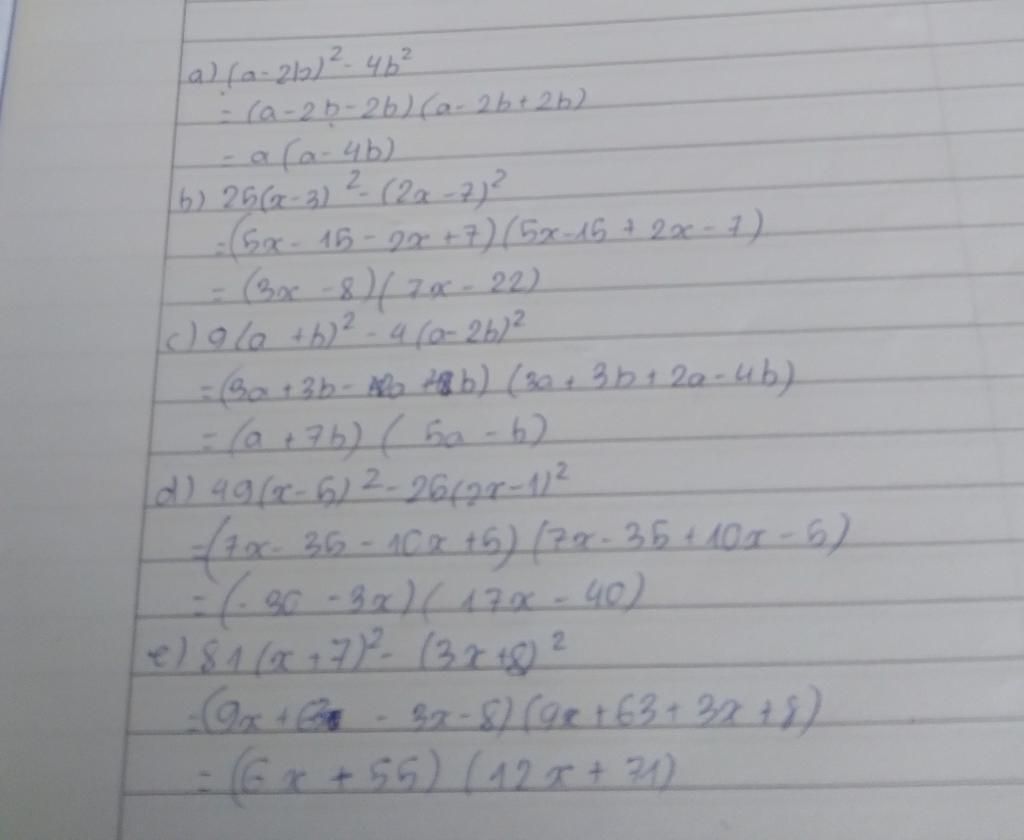 a) (a-2b)² - 4b²
= (a-2b-2b)(a-2b+2b)
= a(a-4b)
b) 25(x-3)² - (2x-7)²
= (5x-15-2x+7)(5x-15+2x-7)
= (3x-8)(7x-22)
c) 9(a+b)² - 4(a-2b)²
= (3a+3b-2a+4b)(3a+3b+2a-4b)
= (a+7b)(5a-b)
d) 49(x-5)² - 25(2x-1)²
= (7x-35-10x+5)(7x-35+10x-5)
= (-30-3x)(17x-40)
e) 81(x+7)² - (3x+8)²
= (9x+63-3x-8)(9x+63+3x+8)
= (6x+55)(12x+71)